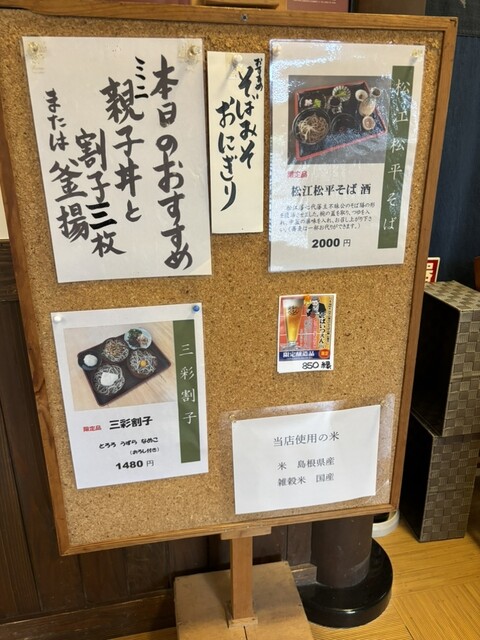 本日のおすすめ
ミニ
親子丼と
割子三枚
または 釜揚
おすすめ
そばみそ
おにぎり
松江松平そば
限定品
松江松平そば 酒
2000円
三彩割子
限定品 三彩割子
とろろ うずら なめこ
(おろし付き)
1480円
限定醸造品
850
当店使用の米
米 島根県産
雑穀米 国産